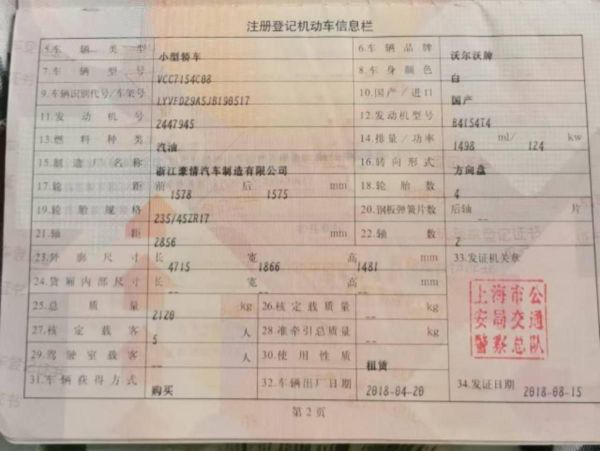 注册登记机动车信息栏
5.车辆类型 小型轿车 6.车辆品牌 沃尔沃牌
7.车辆型号 VCC7154C08 8.车身颜色 白
9.车辆识别代号/车架号 LYVFD29A5JB190517 10.国产/进口 国产
11.发动机号 2447945 12.发动机型号 B4154T4
13.燃料种类 汽油 14.排量/功率 1498 ml/ 124 kw
15.制造厂名称 浙江豪情汽车制造有限公司 16.转向形式 方向盘
17.轮距 前 1578 后 1575 mm 18.轮胎数 4
19.轮胎规格 235/45ZR17 20.钢板弹簧片数 后轴 -- 片
21.轴距 2856 mm 22.轴数 2
23.外廓尺寸 长 4715 宽 1866 高 1481 mm 33.发证机关章
24.货厢内部尺寸 长 -- 宽 -- 高 -- mm
25.总质量 2120 kg 26.核定载质量 -- kg
27.核定载客 5 人 28.准牵引总质量 -- kg
29.驾驶室载客 -- 人 30.使用性质 租赁
31.车辆获得方式 购买 32.车辆出厂日期 2018-04-20 34.发证日期 2018-08-15
上海市公
安局交通
警察总队
第2页